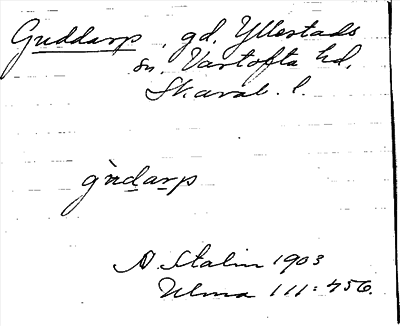 Guddarp, gd, Yllestads
sn. Vartofta hd,
Skarab. l.
gùdarp
A. Stalin 1903
Ulma 111:456.